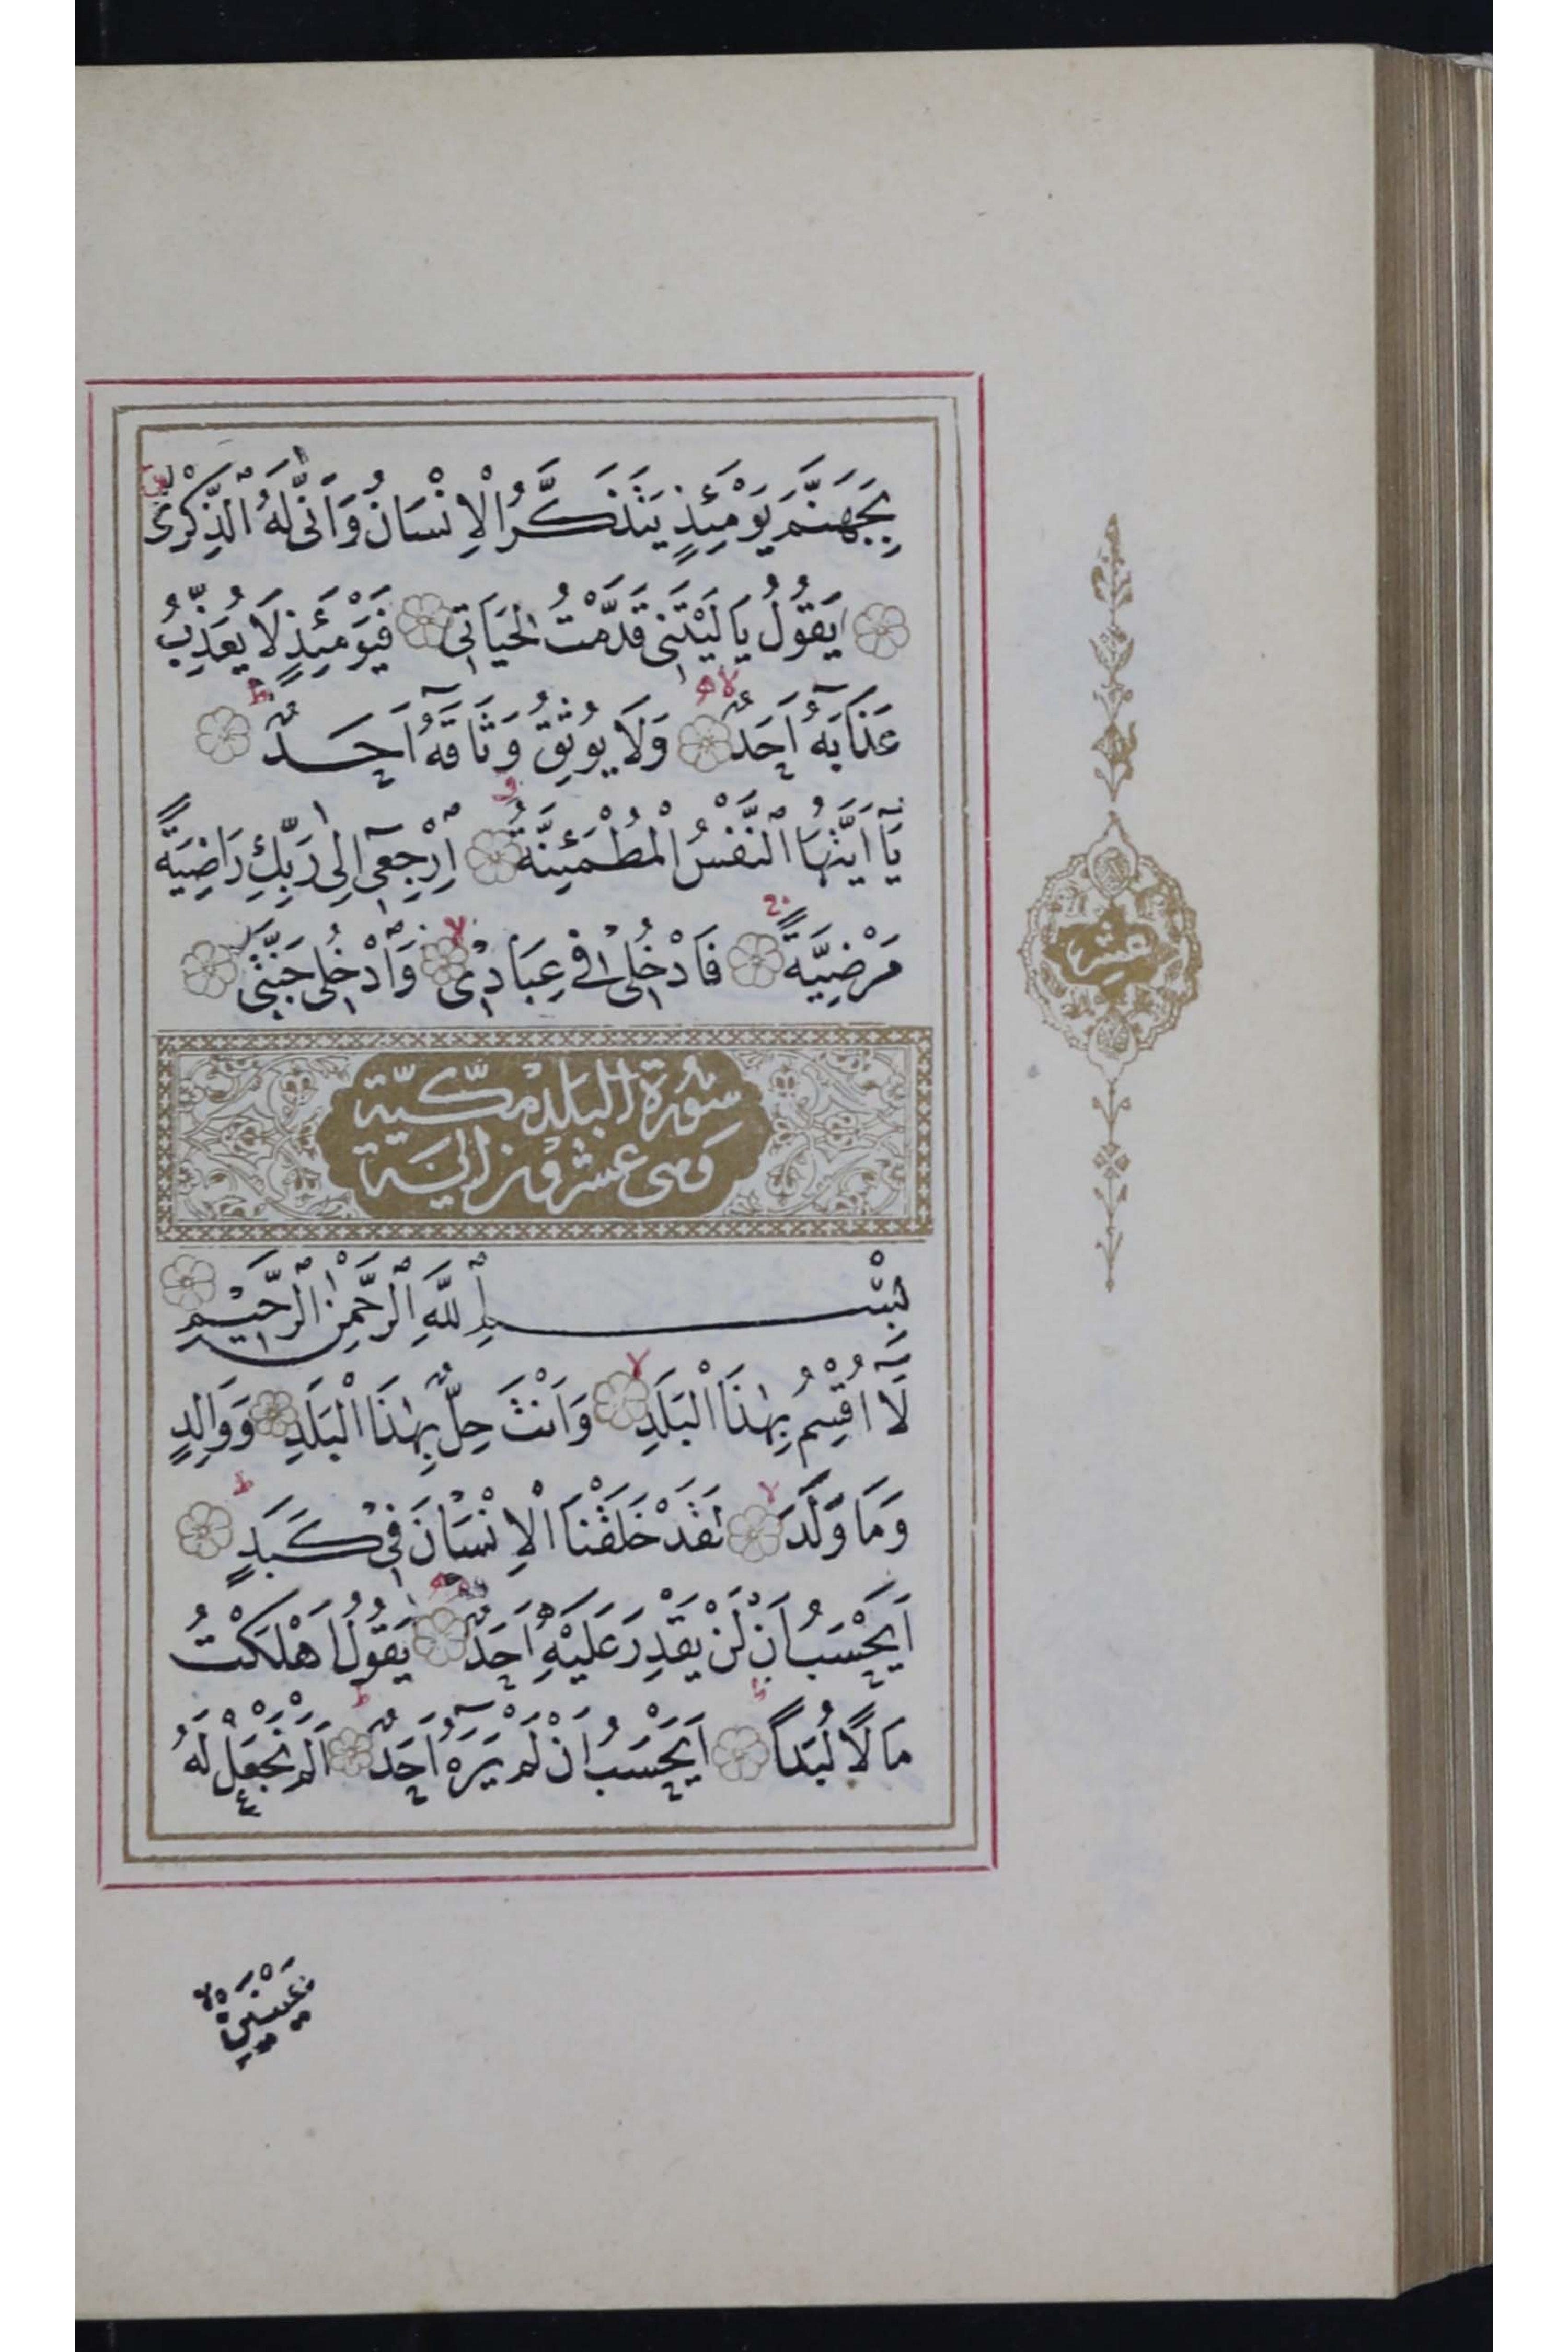 بِجَهَنَّمَ يَوْمَئِذٍ يَتَذَكَّرُ الْاِنْسَانُ وَاَنّٰى لَهُ الذِّكْرٰىۜ
يَقُولُ يَا لَيْتَنِى قَدَّمْتُ لِحَيَاتِى فَيَوْمَئِذٍ لَا يُعَذِّبُ
عَذَابَهُٓ اَحَدٌ وَلَا يُوثِقُ وَثَاقَهُٓ اَحَدٌ
يَٓا اَيَّتُهَا النَّفْسُ الْمُطْمَئِنَّةُ اِرْجِعِٓى اِلٰى رَبِّكِ رَاضِيَةً
مَرْضِيَّةً فَادْخُلِى فِى عِبَادِى وَادْخُلِى جَنَّتِى
سُورَةُ الْبَلَدِ مَكِّيَّة
وهى عشرون اية
بِسْمِ اللّٰهِ الرَّحْمٰنِ الرَّحِيمِ
لَٓا اُقْسِمُ بِهٰذَا الْبَلَدِ وَاَنْتَ حِلٌّ بِهٰذَا الْبَلَدِ وَوَالِدٍ
وَمَا وَلَدَ لَقَدْ خَلَقْنَا الْاِنْسَانَ فِى كَبَدٍ
اَيَحْسَبُ اَنْ لَنْ يَقْدِرَ عَلَيْهِ اَحَدٌ يَقُولُ اَهْلَكْتُ
مَالًا لُبَدًا اَيَحْسَبُ اَنْ لَمْ يَرَهُٓ اَحَدٌ اَلَمْ نَجْعَلْ لَهُ
عَيْنَيْنِ
عشر